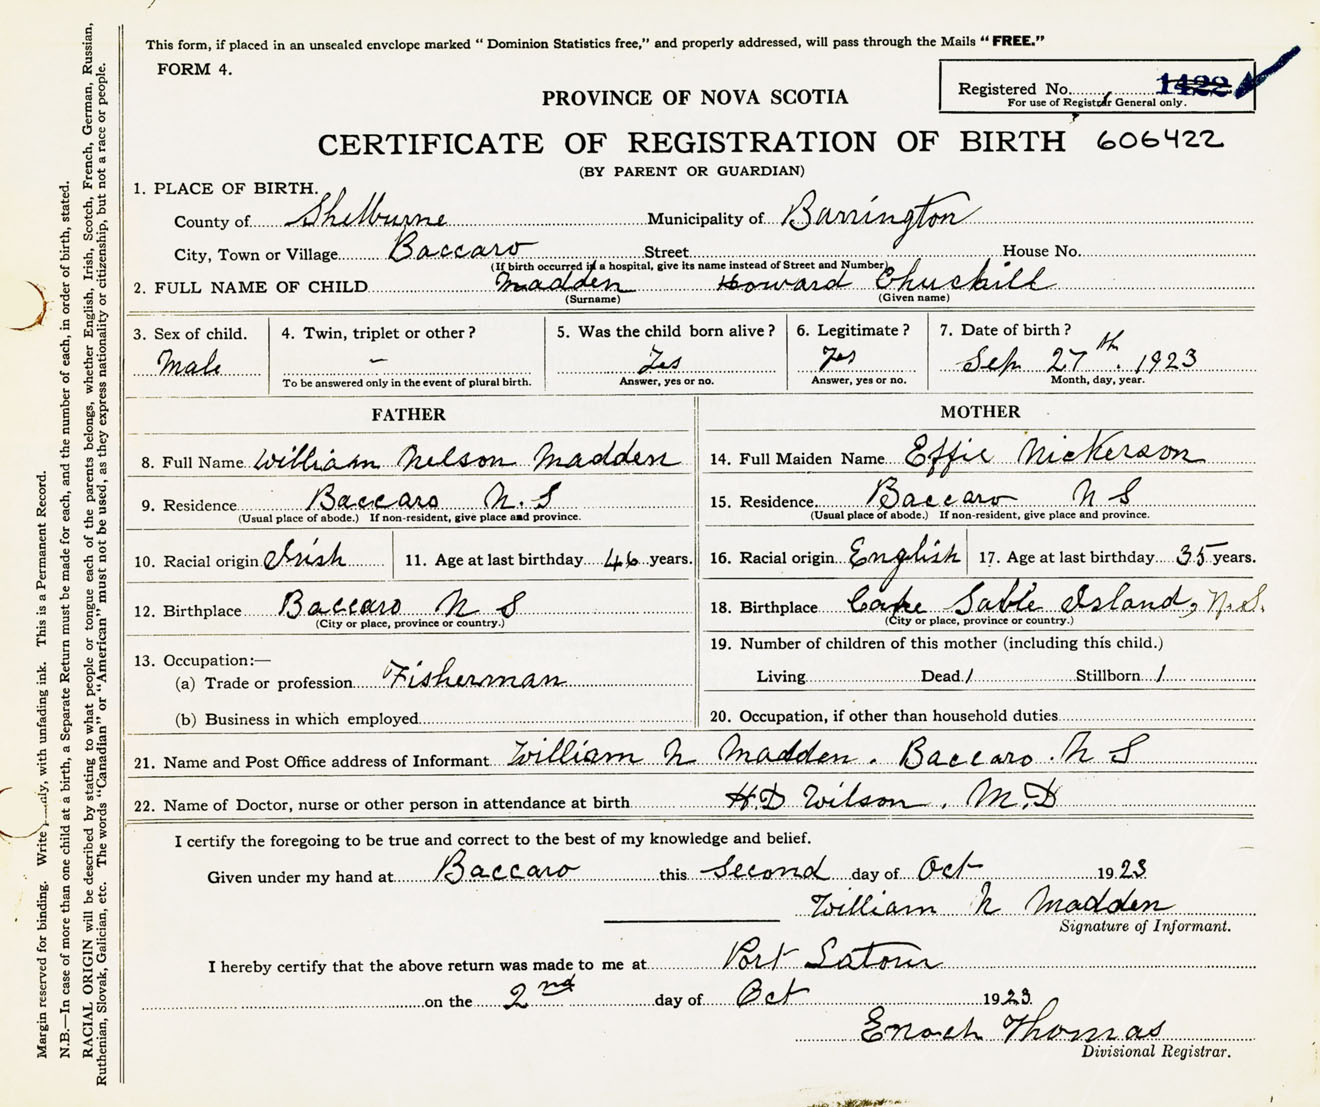 This form, if placed in an unsealed envelope marked “ Dominion Statistics free,” and properly addressed, will pass through the Mails “ FREE.”
FORM 4.
Registered No. 1422
For use of Registrar General only.
PROVINCE OF NOVA SCOTIA
CERTIFICATE OF REGISTRATION OF BIRTH 606422
(BY PARENT OR GUARDIAN)
1. PLACE OF BIRTH.
County of Shelburne Municipality of Barrington
City, Town or Village Baccaro Street House No.
(If birth occurred in a hospital, give its name instead of Street and Number)
2. FULL NAME OF CHILD Madden Howard Churchill
(Surname) (Given name)
3. Sex of child. 4. Twin, triplet or other ? 5. Was the child born alive ? 6. Legitimate ? 7. Date of birth ?
Male – Yes Yes Sep 27th. 1923
To be answered only in the event of plural birth. Answer, yes or no. Answer, yes or no. Month, day, year.
FATHER MOTHER
8. Full Name William Nelson Madden 14. Full Maiden Name Effie Nickerson
9. Residence Baccaro N.S 15. Residence Baccaro N S
(Usual place of abode.) If non-resident, give place and province. (Usual place of abode.) If non-resident, give place and province.
10. Racial origin Irish 11. Age at last birthday 46 years. 16. Racial origin English 17. Age at last birthday 35 years.
12. Birthplace Baccaro N S 18. Birthplace Cape Sable Island, N.S.
(City or place, province or country.) (City or place, province or country.)
13. Occupation:— 19. Number of children of this mother (including this child.)
(a) Trade or profession Fisherman Living Dead / Stillborn /
(b) Business in which employed 20. Occupation, if other than household duties
21. Name and Post Office address of Informant William N Madden. Baccaro. N S
22. Name of Doctor, nurse or other person in attendance at birth H.D Wilson. M.D
I certify the foregoing to be true and correct to the best of my knowledge and belief.
Given under my hand at Baccaro this Second day of Oct 1923
William N Madden
Signature of Informant.
I hereby certify that the above return was made to me at Port Latour
on the 2nd day of Oct 1923
Enoch Thomas
Divisional Registrar.
Margin reserved for binding. Write with unfading ink. This is a Permanent Record.
N.B.—In case of more than one child at a birth, a Separate Return must be made for each, and the number of each, in order of birth, stated.
RACIAL ORIGIN will be described by stating to what people or tongue each of the parents belongs, whether English, Irish, Scotch, French, German, Russian,
Ruthenian, Slovak, Galician, etc. The words “Canadian” or “American” must not be used, as they express nationality or citizenship, but not a race or people.